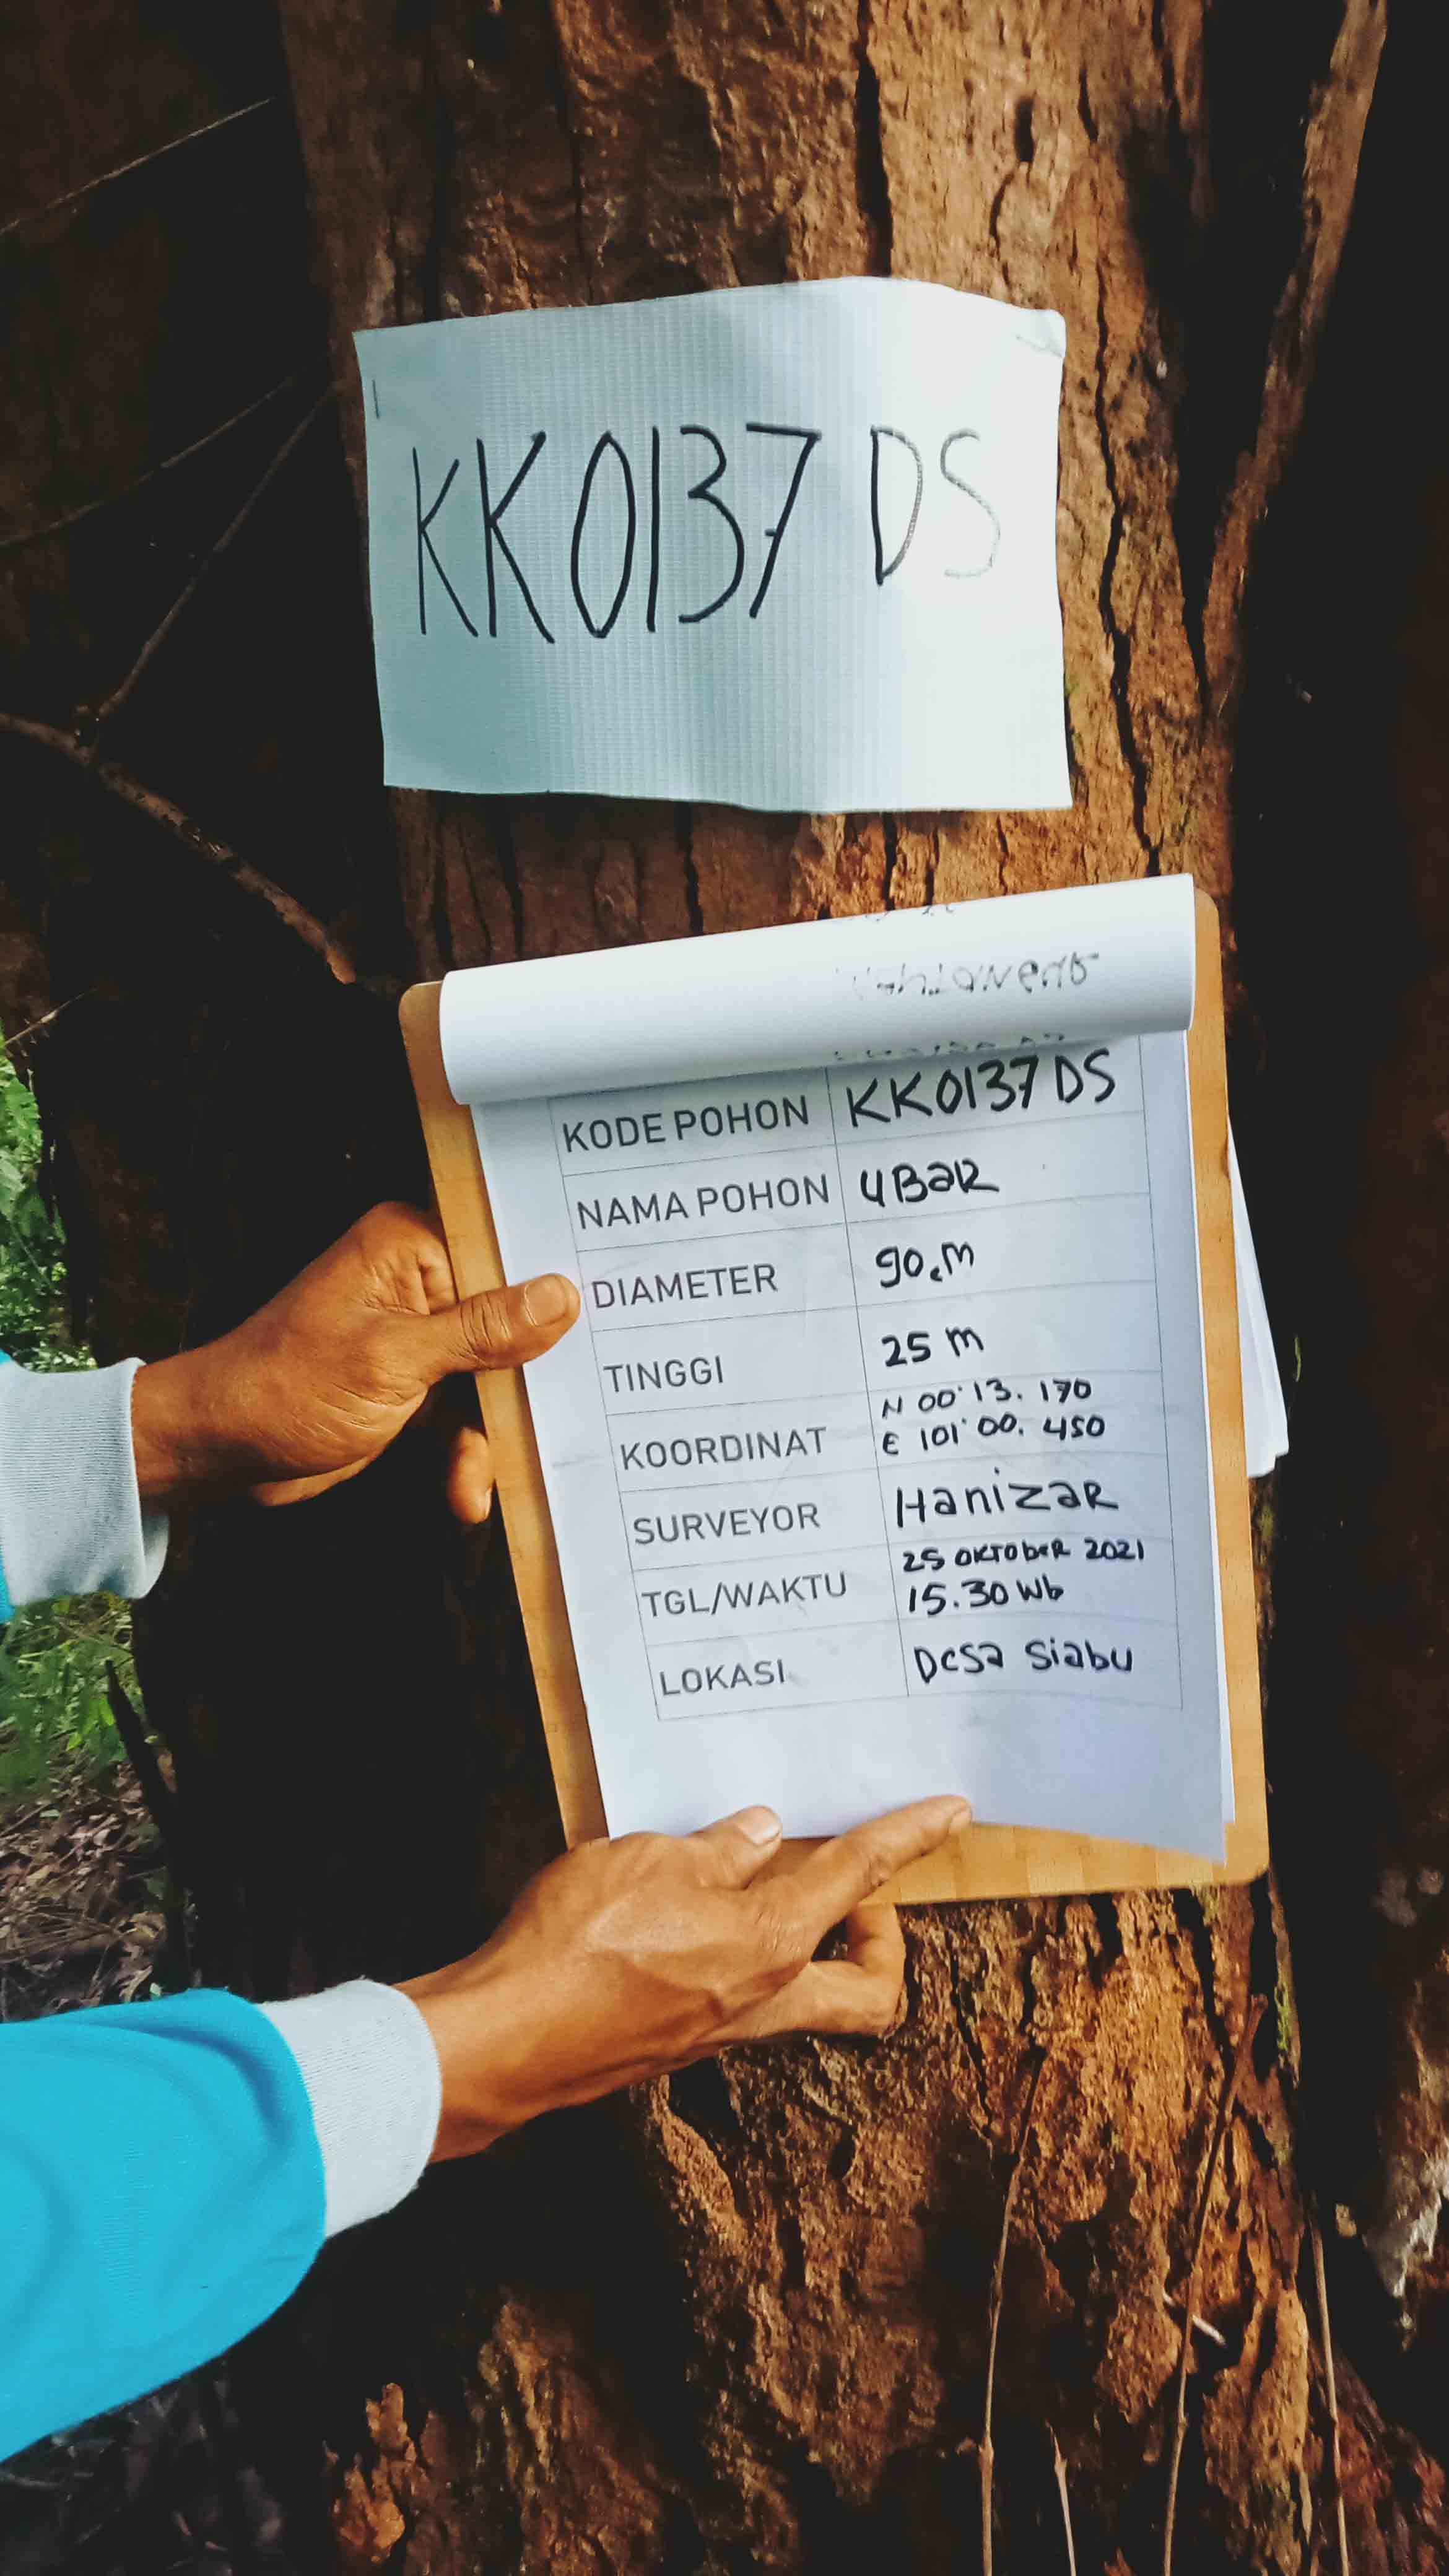 KK0137 DS
KODE POHON KK0137 DS
NAMA POHON UBaR
DIAMETER 90cm
TINGGI 25 m
KOORDINAT N 00° 13. 170
E 101° 00. 450
SURVEYOR HanizaR
TGL/WAKTU 25 OKTObeR 2021
15.30 Wb
LOKASI Desa Siabu